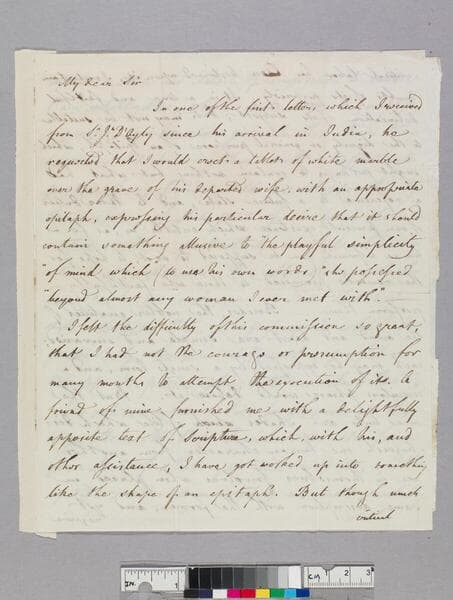 My dear Sir
In one of the first letters which I received
from Sr. Js. D'Oyly since his arrival in India, he
requested that I would erect a tablet of white marble
over the grave of his departed wife, with an appropriate
epitaph, expressing his particular desire that it should
contain something allusive to "the playful simplicity
"of mind which (to use his own words) "she possessed
"beyond almost any woman I ever met with" —
I felt the difficulty of this commission so great,
that I had not the courage or presumption for
many months to attempt the execution of it. A
friend of mine furnished me with a delightfully
apposite text of Scripture, which, with his, and
other assistance, I have got worked up into something
like the shape of an epitaph. But though much
IN. 1 2 3
CM 1